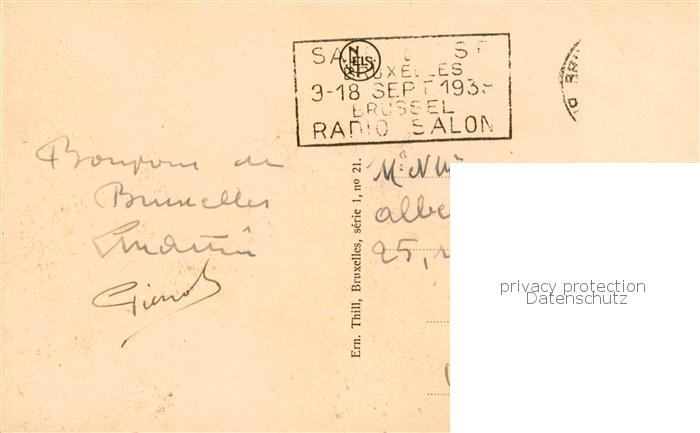 SA
NELS
BRUXELLES
9-18 SEPT 193
BRUSSEL
RADIO SALON
BR
Bonjour de
Bruxelles
Pierrot
Ern. Thill, Bruxelles, série 1, no 21.
albe
25, r
privacy protection
Datenschutz